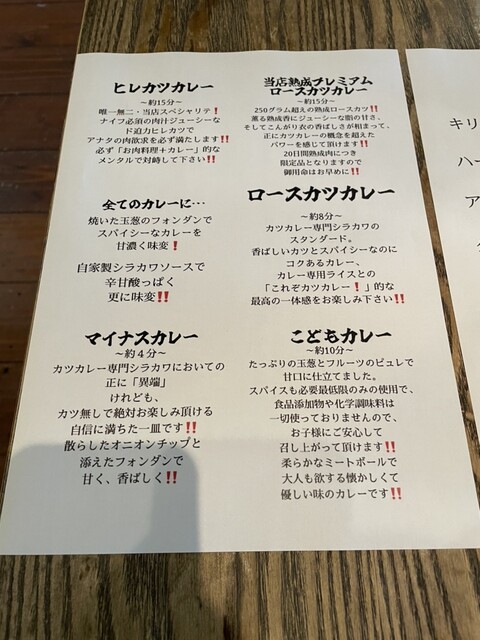 ヒレカツカレー
〜約15分〜
唯一無二・当店スペシャリテ❗
ナイフ必須の肉汁ジューシーな
ド迫力ヒレカツで
アナタの肉欲求を必ず満たします‼
必ず「お肉料理＋カレー」的な
メンタルで対峙して下さい‼
当店熟成プレミアム
ロースカツカレー
〜約15分〜
250グラム超えの熟成ロースカツ‼
薫る熟成香にジューシーな脂の甘さ、
そしてこんがり衣の香ばしさが相まって、
正にカツカレーの概念を超えた
パワーを感じて頂けます‼
20日間熟成肉につき
限定品となりますので
御用命はお早めに‼
全てのカレーに…
焼いた玉葱のフォンダンで
スパイシーなカレーを
甘濃く味変❗
自家製シラカワソースで
辛甘酸っぱく
更に味変‼
ロースカツカレー
〜約8分〜
カツカレー専門シラカワの
スタンダード。
香ばしいカツとスパイシーなのに
コクあるカレー、
カレー専用ライスとの
「これぞカツカレー❗」的な
最高の一体感をお楽しみ下さい‼
マイナスカレー
〜約４分〜
カツカレー専門シラカワにおいての
正に「異端」
けれども、
カツ無しで絶対お楽しみ頂ける
自信に満ちた一皿です‼
散らしたオニオンチップと
添えたフォンダンで
甘く、香ばしく‼
こどもカレー
〜約10分〜
たっぷりの玉葱とフルーツのピュレで
甘口に仕立てました。
スパイスも必要最低限のみの使用で、
食品添加物や化学調味料は
一切使っておりませんので、
お子様にご安心して
召し上がって頂けます‼
柔らかなミートボールで
大人も欲する懐かしくて
優しい味のカレーです‼
キリ
ハー
ア